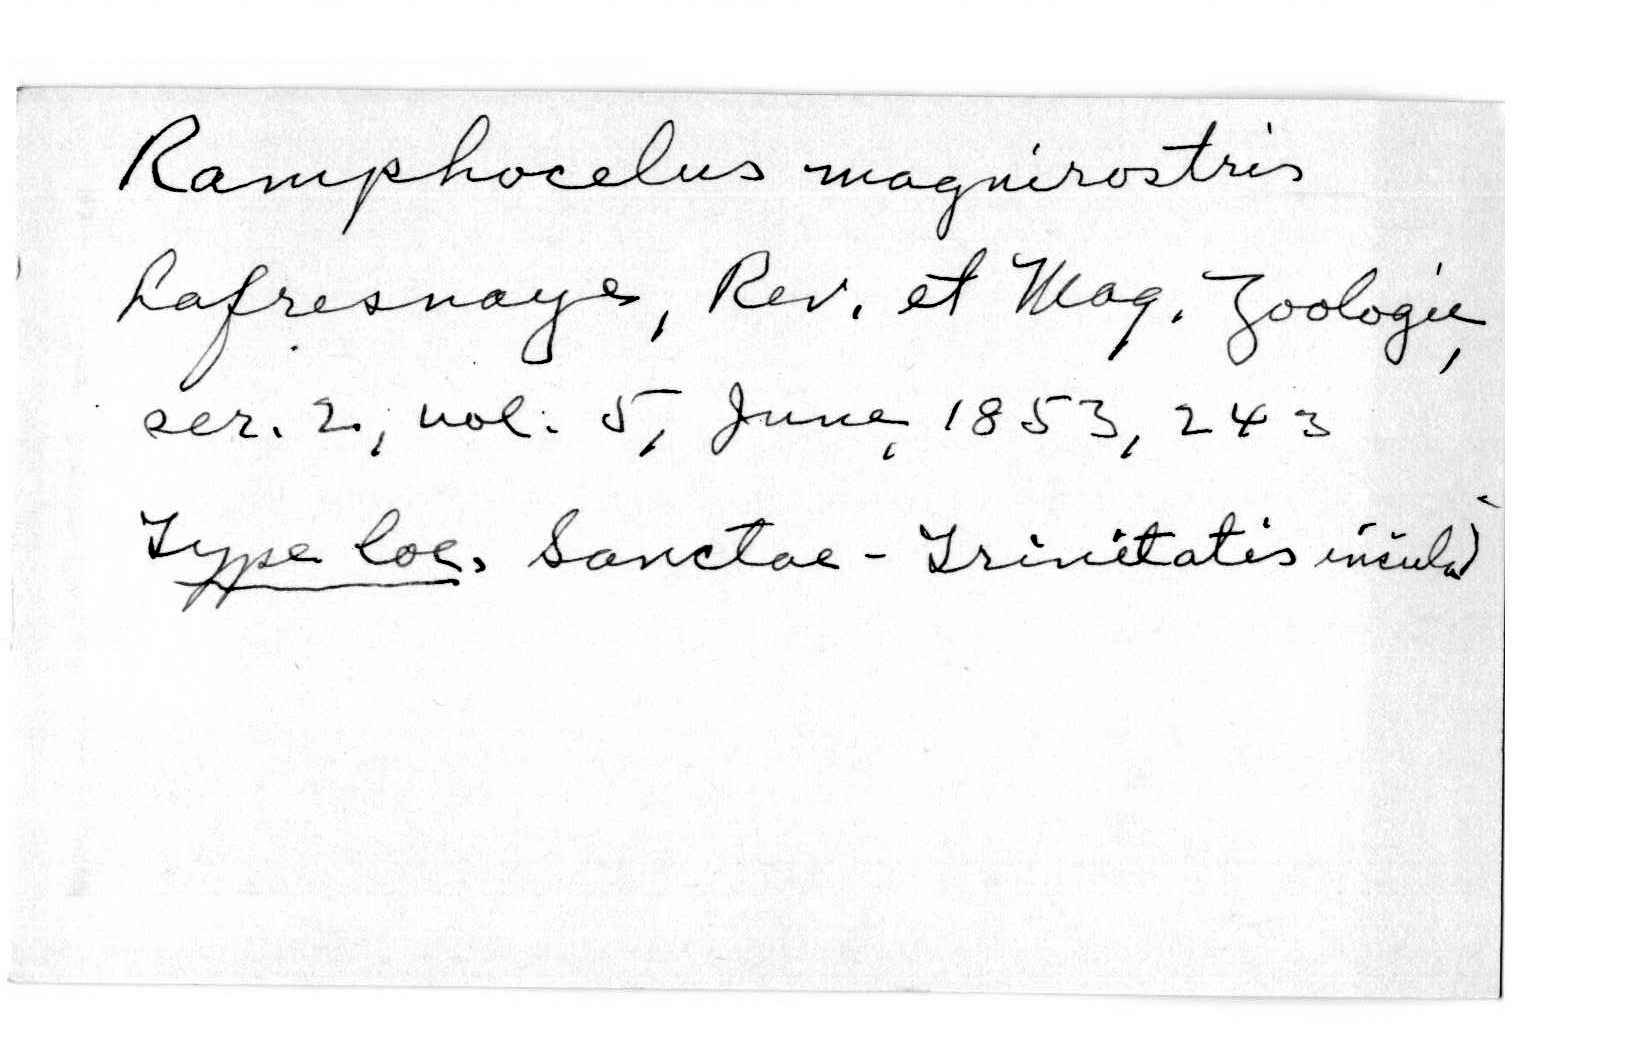 Ramphocelus magnirostris
Lafresnaye, Rev. et Mag. Zoologie,
ser. 2, vol. 5, June, 1853, 243
Type loc. Sanctae-Trinitatis insulà